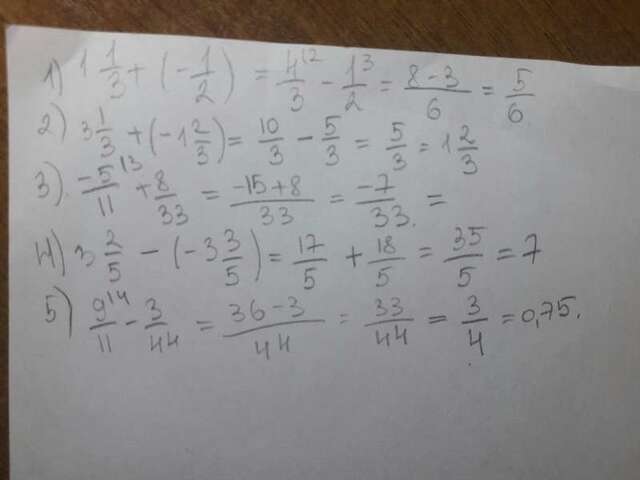 1) 1 1/3 + (-1/2) = 4^(2/3 - 1^(3/2 = 8-3/6 = 5/6
2) 3 1/3 + (-1 2/3) = 10/3 - 5/3 = 5/3 = 1 2/3
3) -5^(3/11 + 8/33 = -15+8/33 = -7/33. =
4) 3 2/5 - (-3 3/5) = 17/5 + 18/5 = 35/5 = 7
5) 9^(4/11 - 3/44 = 36-3/44 = 33/44 = 3/4 = 0,75.